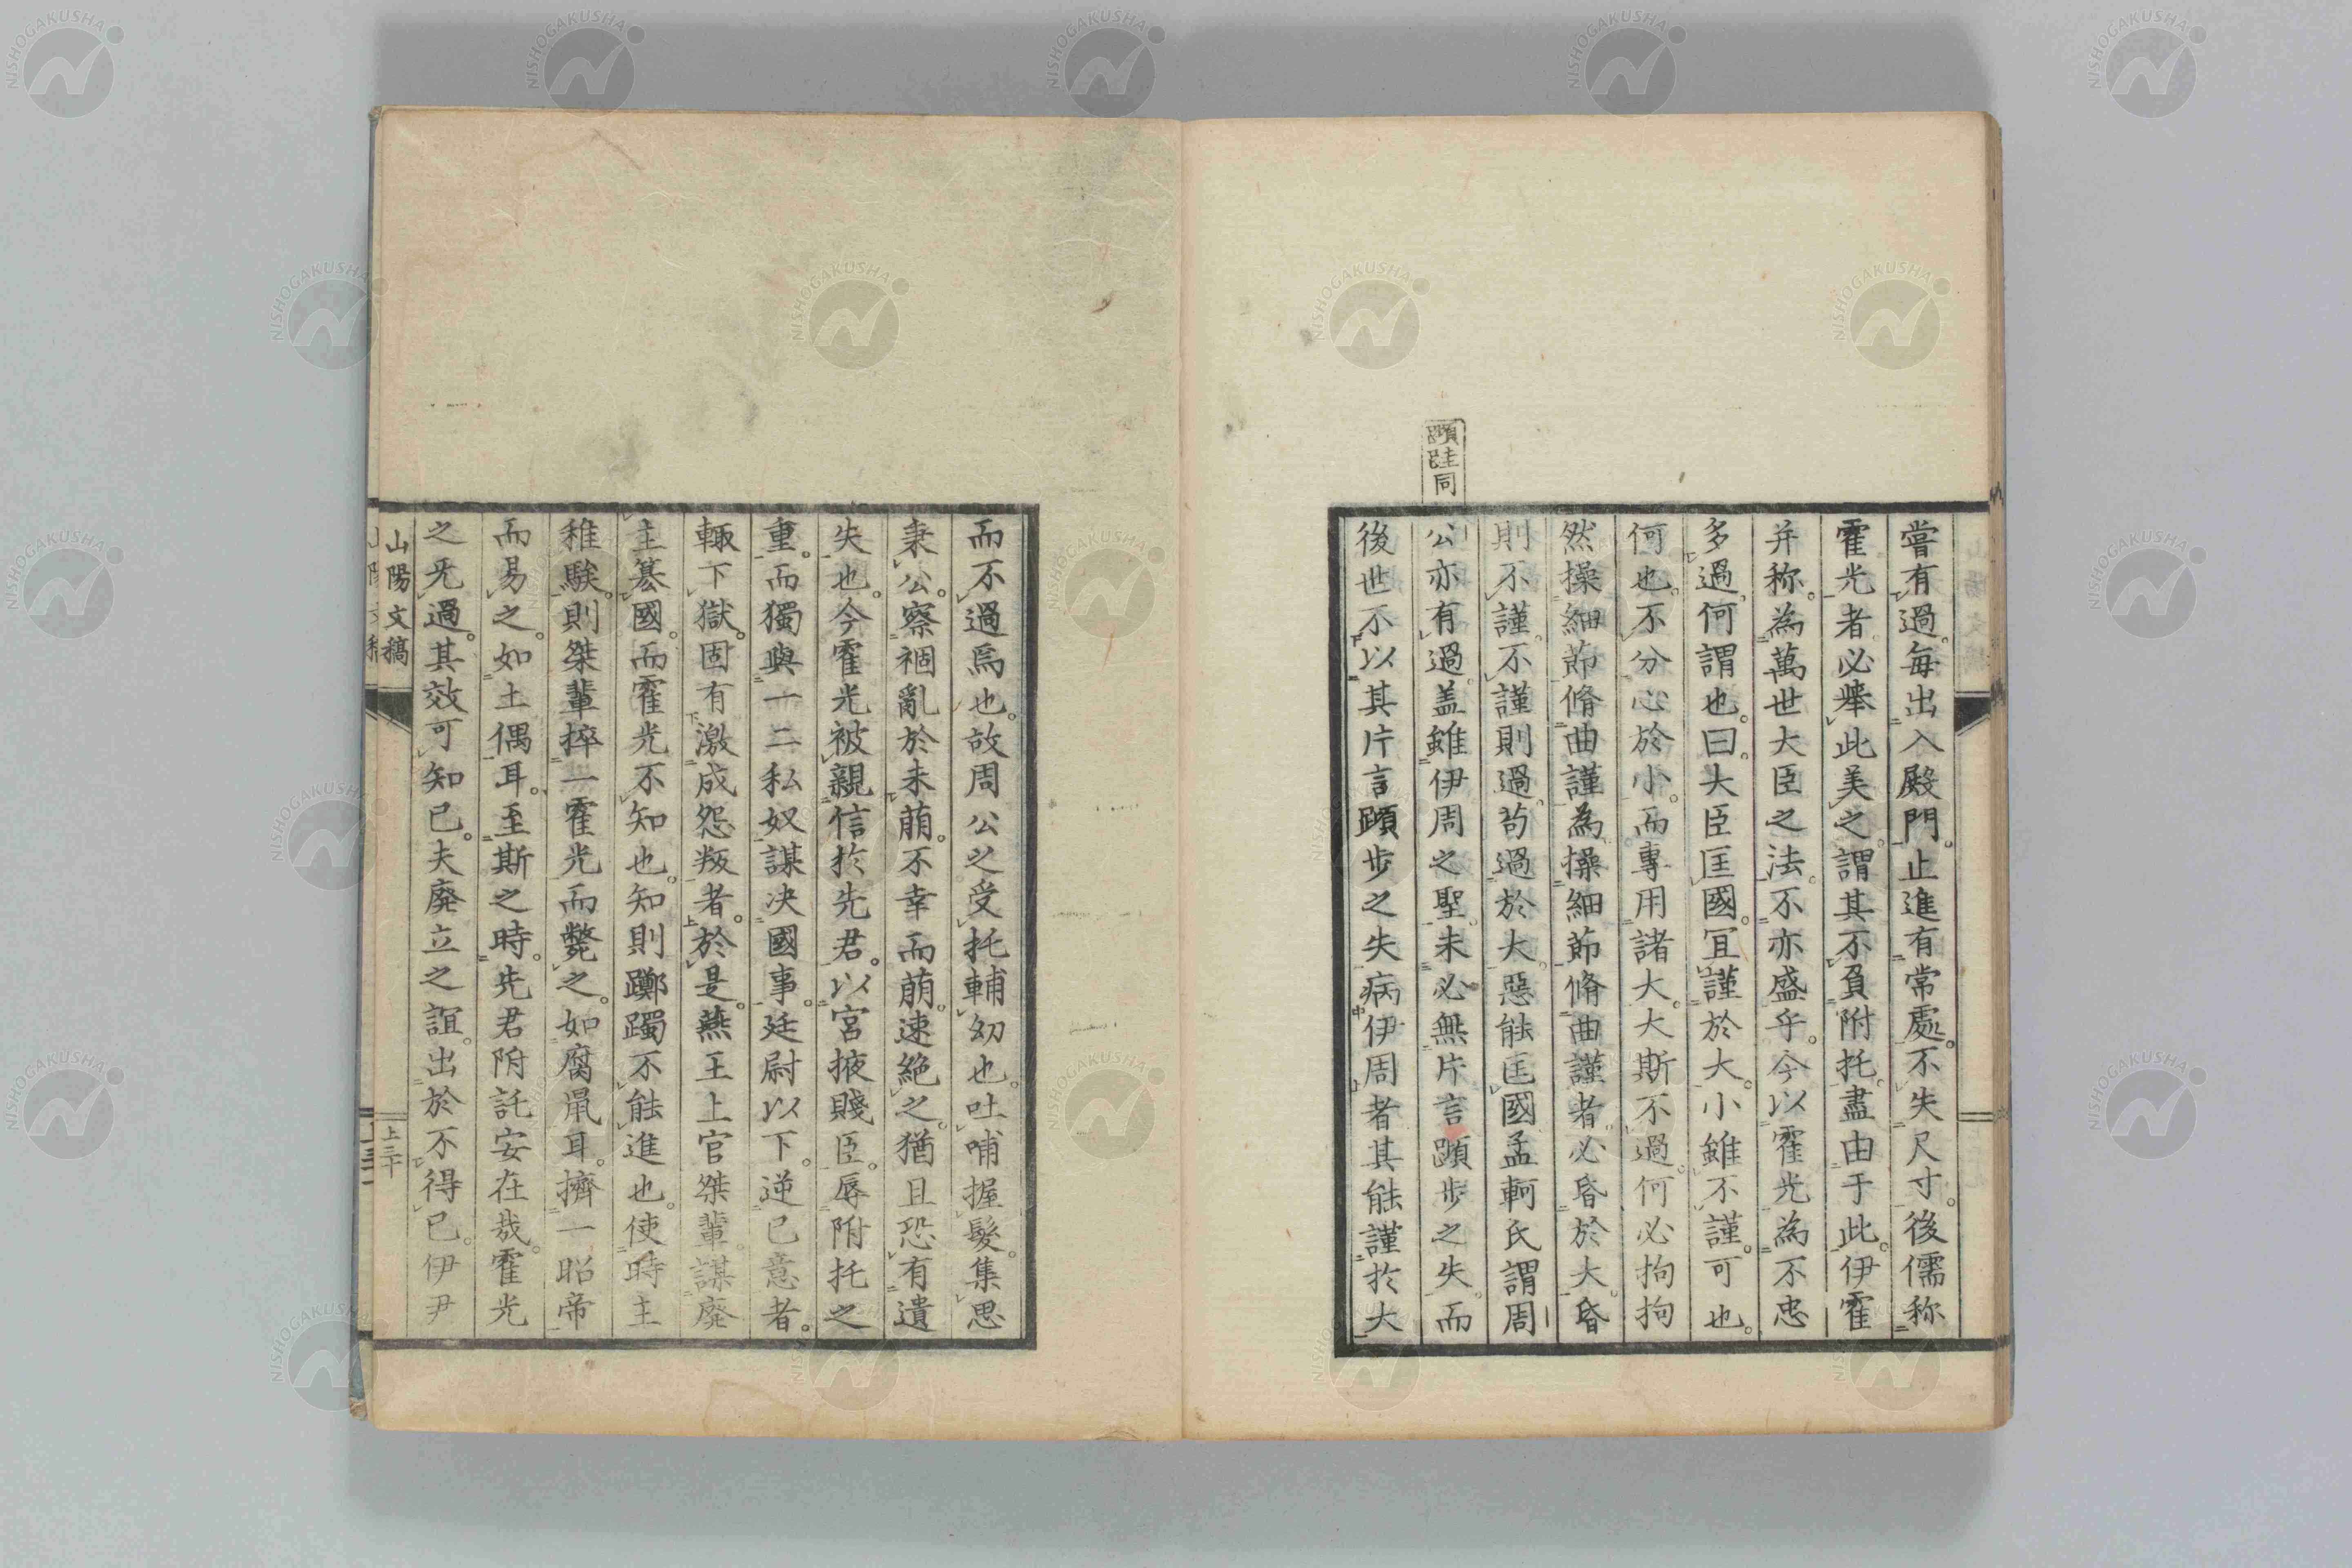 嘗有過。毎出入殿門。止進有常處。不失尺寸。後儒称
霍光者。必擧此美之。謂其不負附托。盡由于此。伊霍
并称。為萬世大臣之法。不亦盛乎。今以霍光為不忠
多過。何謂也。曰。大臣匡國。冝謹於大。小雖不謹。可也。
何也。不分心於小。而專用諸大。大斯不過。何必拘拘
然操細莭脩曲謹為。操細莭脩曲謹者。必昏於大。昏
則不謹。不謹則過。苟過於大。惡能匡國。孟軻氏謂周
公亦有過。盖雖伊周之聖。未必無片言顕步之失。而
後世不以其片言顕步之失病伊周者其能謹於大
同
而不過焉也。故周公之受托輔幼也。吐哺握髮。集思
秉公。察禍亂於未萠。不幸而萠。速絶之。猶且恐有遺
失也。今霍光被親信於先君。以宮掖賤臣。辱附托之
重。而獨與一二私奴謀决國事。廷尉以下。逆已意者。
輙下獄。固有激成怨叛者。於是。燕王上官桀輩。謀廢
主簒國。而霍光不知也。知則躑躅不能進也。使時主
稚騃。則桀輩捽一霍光而斃之。如腐鼠耳。擠一昭帝
而易之。如土偶耳。至斯之時。先君附託安在哉。霍光
之旡過。其效可知已。夫廢立之誼。出於不得已。伊尹
山陽文稿
上三十
NISHOGAKUSHA